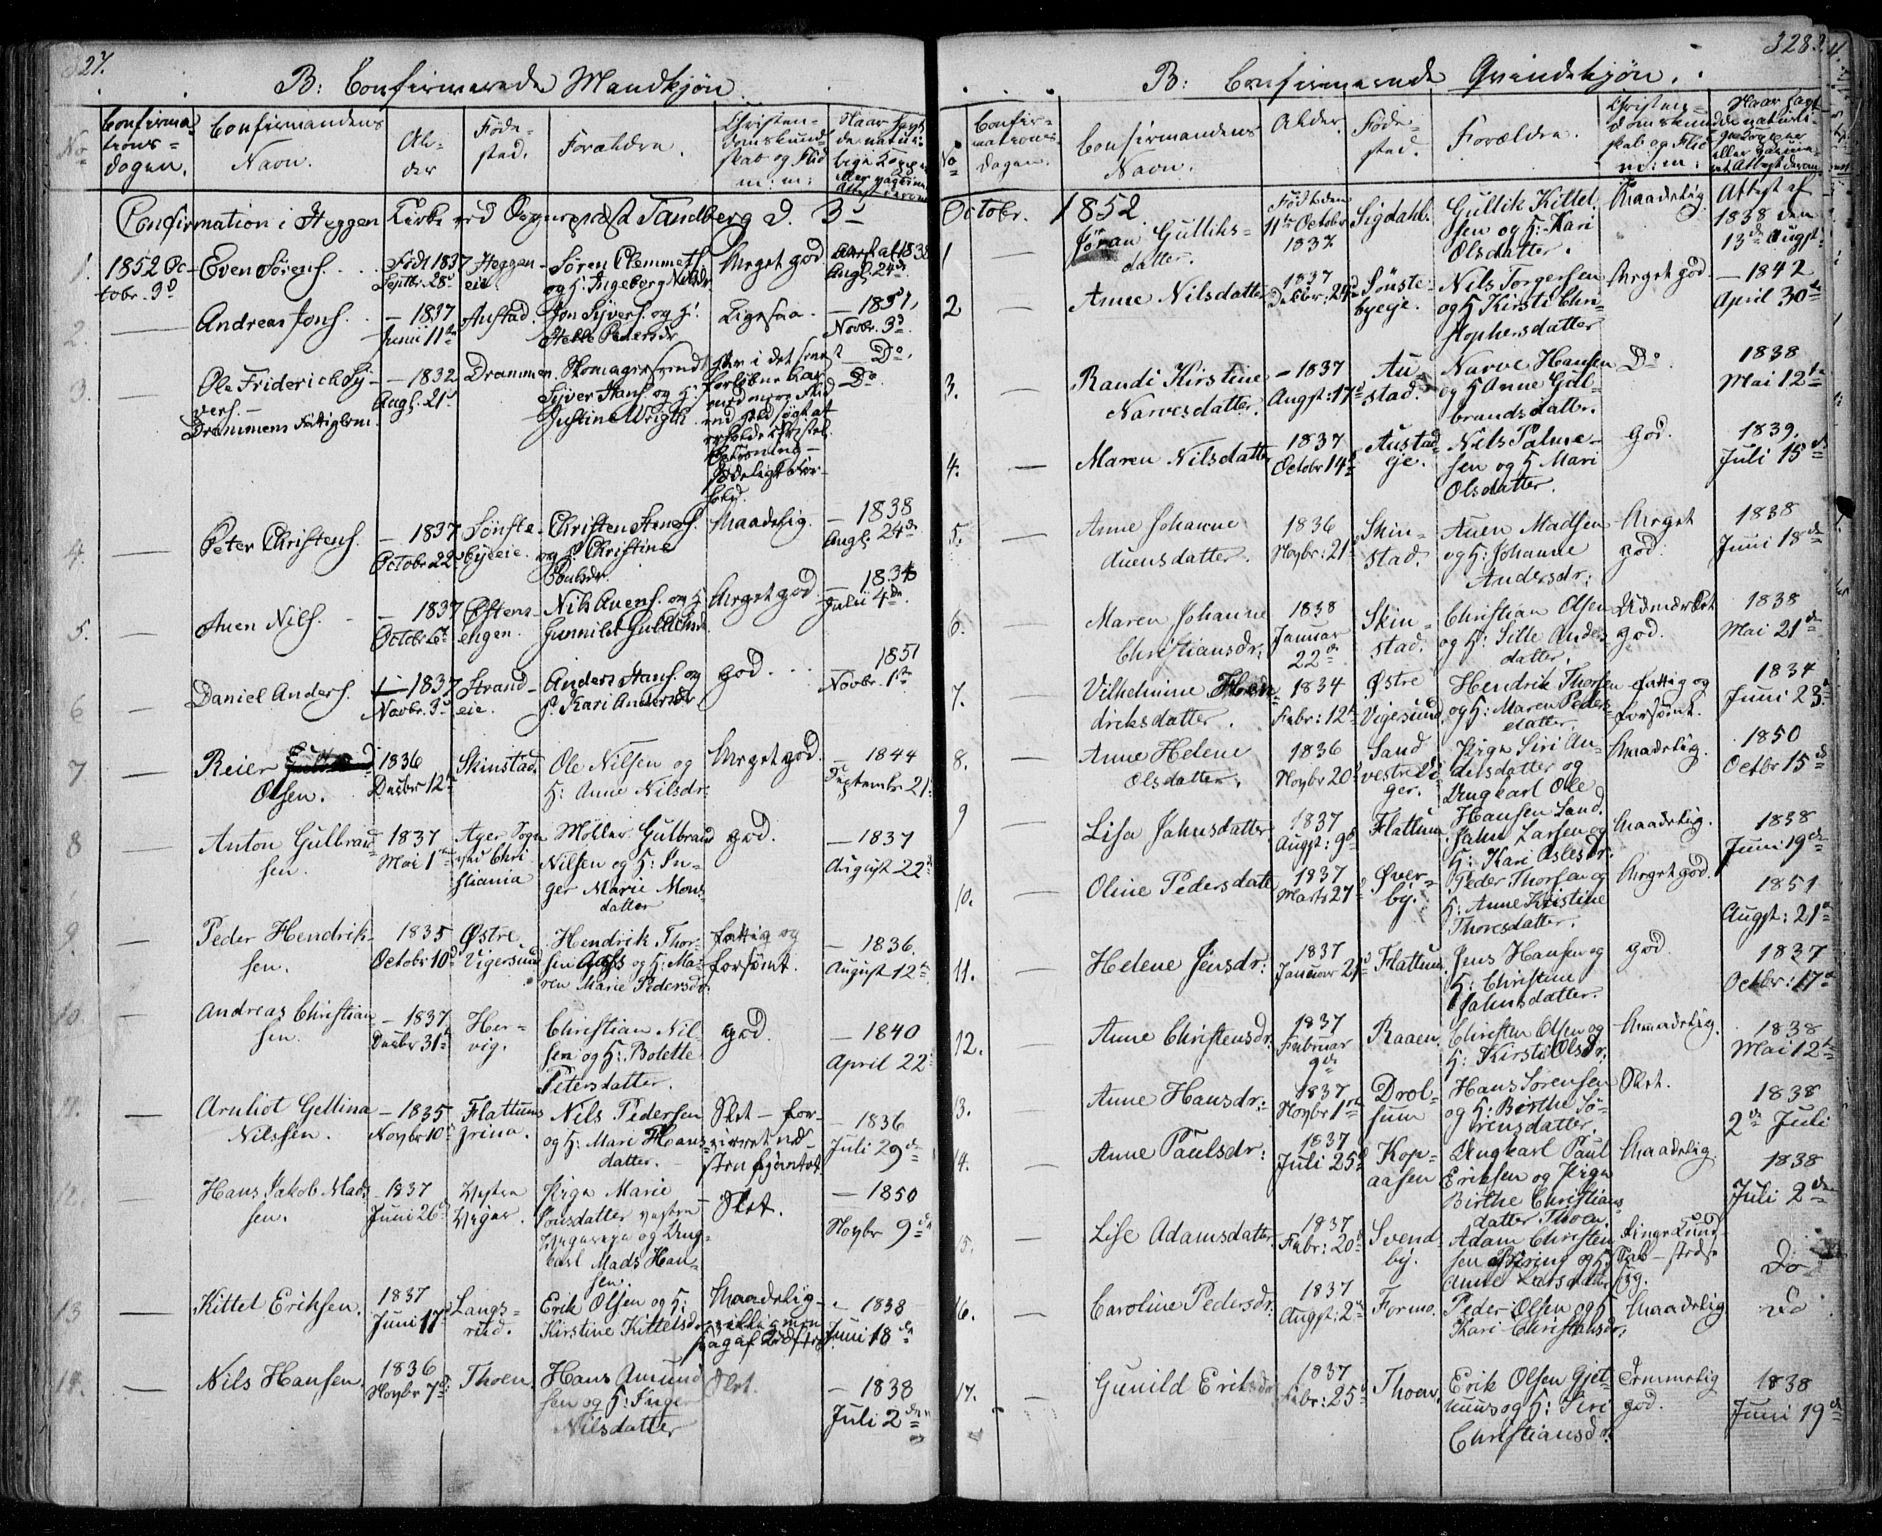 327.
B: Confirmerede Mandkjøn.
No
Confirma-
tions-
dagen.
Confirmandens
Navn.
Al-
der
Føde-
sted.
Forældre.
Christen-
domskund-
skab og Flid
m: m:
Confirmation i Heggen Kirke ved Sognepræst Tandberg d. 3d
1. 1852 Oc-
tobr. 3d
Even Sørens.
Født 1837
Septbr. 28d
Heggen-
eie
Søren Clemmets.
og h: Ingeborg Nilsdr.
Meget god
1838
Augs. 24de
2.
Andreas Jons.
1837
Junii 11te
Austad.
Jon Syvers. og h:
Helle Pedersdr.
Ligesaa.
1851,
Novbr. 3d
3.
Ole Friderich Sy-
vers.
Drammens Fattiglem.
1832
Augs. 21d
Drammen
Skomagersvend
Syver Hans. og h:
Justine Wrigth
Do.
Do.
4.
Peter Christens.
1837
Octobr. 22
Sønste-
byeeie.
Christen Hans.
og h: Christine
Poulsdr.
Maadelig.
1838
Augs. 24de
5.
Auen Nils.
1837
Octobr. 6t
Østens-
engen.
Nils Auens. og h:
Gunnild
Meget god.
Julii 4de.
6
Daniel Anders.
1837
Novbr. 3d
Strand-
eie.
Anders Hans. og
h: Kari Andersdr.
god.
1851
Novbr. 1ste
7
Reier
Olsen.
1836
Decbr 12te
Skinstad.
Ole Nilsen og
h: Anne Nilsdr.
Meget god.
1844
September 21
8
Anton Gulbrand-
sen.
1837
Mai 1ste
Ager Sogn
ved Chri
stiania
Møller Gulbrand
Nilsen og h: In-
ger Marie Mons-
datter
god.
1837
August 22
9.
Peder Hendrik-
sen.
1835
Octobr 10d
Østre
Vigersund
Hendrik Thor-
sen Aas og h: Ma-
ren Marie Pedersdr.
fattig og
forsømt.
1836.
August 12te
10.
Andreas Christian
sen.
1837.
Decbr 31te
Her-
vig.
Christian Nil-
sen og h: Bolette
Petersdatter.
god.
1840
April 22
11.
Arnliot Gellina
Nilssen.
1835
Novbr 10
Flattums
grina.
Nils Pedersen
og h: Mari Hans-
datter.
Slet – for-
1836
Juli 29de
12.
Hans Jakob Mads
sen.
1837
Juni 26d
Vestre
Viger.
Pige Marie
Jonsdatter vestre
Vigereie og Ung-
karl Mads Han-
sen.
Slet.
1850
Novbr 9de
13
Kittel Eriksen.
1837
Juni 17d
Langs-
rud.
Erik Olsen og h:
Kirstine Kittelsdr.
Maadelig
1838
Juni 18de
14.
Nils Hansen.
1836
Novbr 7de
Thoen.
Hans Amund
sen og h: Inger
Nilsdatter
Slet.
1838
Juli 2den
328.
B: Confirmerede Qvindekjøn.
No
Confir-
mations
dagen.
Confirmandens
Navn.
Alder.
Føde-
sted.
Forældre.
Christen-
domskund
skab og Flid
m: m:
Naar havt
de naturli-
ge Kopper
eller vaccine-
ret Attest derom
Octobr. 1852
1
Jøran Gulliks-
datter.
Født den
11te October
1837
Sigdahl.
Gullik Kittel
sen og h: Kari
Olsdatter.
Maadelig
Attest af
1838 den
13de Augst:
2
Anne Nilsdatter
1837
Decbr: 24d
Sønste-
byeeje.
Nils Torgersen
og h Kirsti Chri-
stophersdatter
Meget god
1842
April 30te
3.
Randi Kirstine
Narvesdatter.
1837
Augst: 17d
Au
stad.
Narve Hansen
og h Anne Gul-
brandsdatter.
Do
1838
Mai 12te
4.
Maren Nilsdatter
1837
Octobr 14d
Austad
eje.
Nils Palme-
sen og h Mari
Olsdatter.
god.
1839.
Juli 15de
5.
Anne Johanne
Auensdatter.
1836
Novbr: 21d
Skin-
stad.
Auen Madsen
og h: Johanne
Andersdr:
Meget
god.
1838
Juni 18de
6.
Maren Johanne
Christiansdr:
1838
Januar
22d
Skin-
stad.
Christian Olsen
og h: Sille Anders
datter.
Udmærket
god.
1838
Mai 21de
7.
Vilhelmine Hen-
driksdatter.
1834
Febr: 12te
Østre
Vigersund
Hendrik Thorsen
og h: Maren Peders-
datter.
fattig og
forsømt.
1834
Juni 23d
8.
Anne Helene
Olsdatter.
1836
Novbr 20d
Sand
vestre Vi-
ger.
Pige Siri An-
dersdatter og
Ungkarl Ole
Hansen Sand.
Maadelig.
1850
Octbr 15de
9
Lisa Jahnsdatter
1837
Augst: 9de
Flattum
Jahn Larsen og
h: Kari Aslesdr:
Maadelig.
1838
Juni 19de
10.
Oline Pedersdatter
1837
Marts 27d
Øver-
by.
Peder Thorsen og
h: Anne Kirstine
Thoresdatter.
Meget god.
1851
Augst: 21d
11.
Helene Jensdr:
1837
Januar 21d
Flattum
Jens Hansen og
h: Christine
Jahnsdatter.
god.
1837
Octbr: 17de
12.
Anne Christensdr.
1837
Februar
9de
Raaen.
Christen Olsen og
h: Kirsti Olsdr.
Maadelig.
1838
Mai 12te
13.
Anne Hansdr:
1837
Novbr 1ste
Drol-
sum
Hans Sørensen
og h: Birthe Sø-
rensdatter.
Slet.
1838
2den Juli
14.
Anne Paulsdr:
1837
Juli 25d
Kop-
aasen
Ungkarl Paul
Eriksen og Pige
Birthe Christians-
datter Thoen.
Maadelig
1838
Juli 2den
15.
Lise Adamsdatter
1837
Febr: 20d
Svend-
by.
Adam Christen
sen Bering og h:
Anne Larsdatter
Ringe Kund
skab –
Do
16.
Caroline Pedersdr.
1837
Augst: 2d
Formo.
Peder Olsen og h
Kari Christiansdr.
Maadelig
Do
17.
Gunild Eriksdr
1837
Febr: 25d
Thoen
Erik Olsen Gjel-
og h: Siri
Christiansdr.
Temmelig
god.
1838
Juni 19de